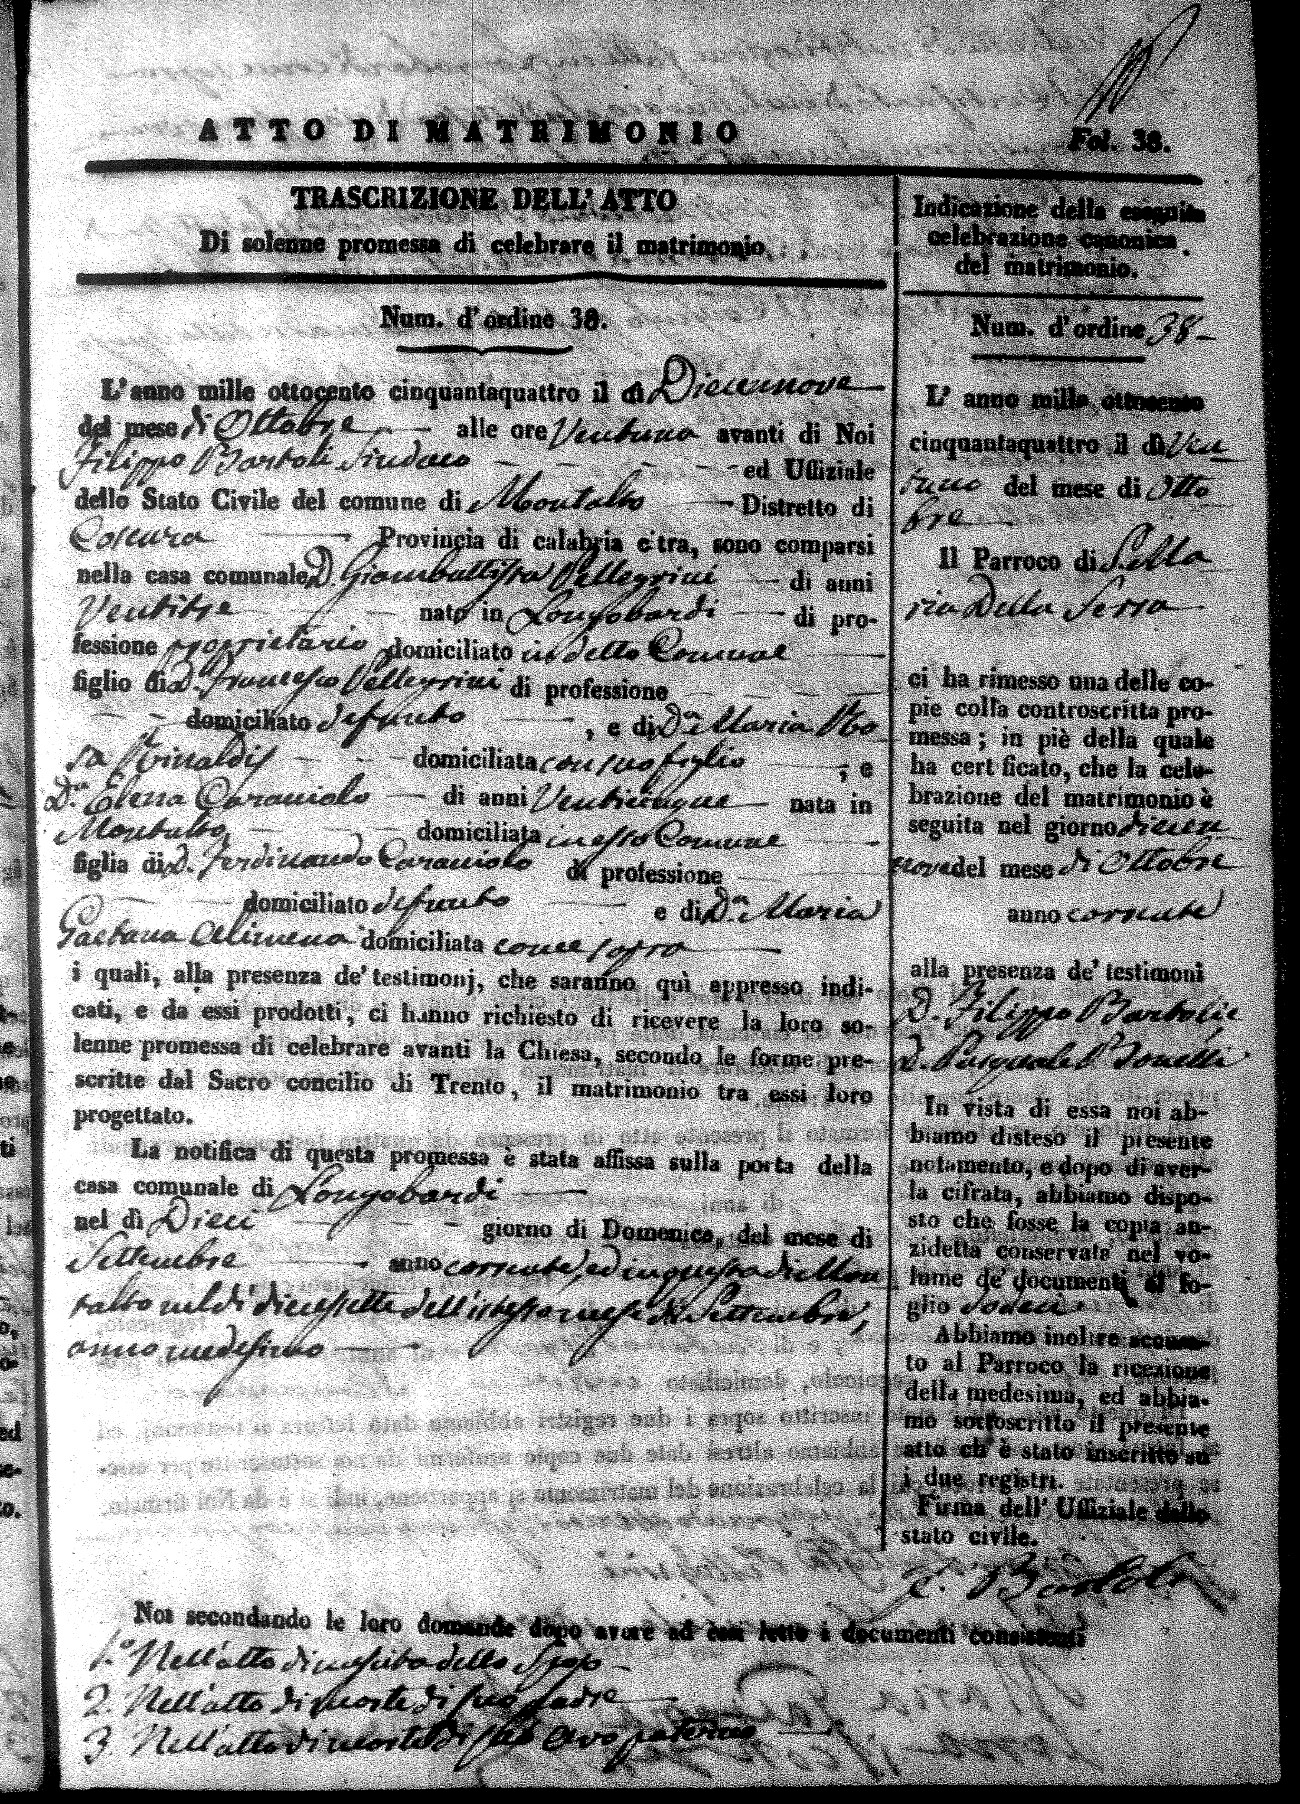 ATTO DI MATRIMONIO
Fol. 38.
TRASCRIZIONE DELL' ATTO
Di solenne promessa di celebrare il matrimonio.
Num. d' ordine 38.
L' anno mille ottocento cinquantaquattro il dì Diecinnove
del mese di Ottobre alle ore Ventuna avanti di Noi
Filippo Bartoli Sindaco ed Uffiziale
dello Stato Civile del comune di Montalto Distretto di
Cosenza Provincia di calabria citra, sono comparsi
nella casa comunale D. Giambattista Pellegrini di anni
Ventitre nato in Longobardi di pro-
fessione proprietario domiciliato in detto Comune
figlio di D. Francesco Pellegrini di professione
domiciliato defunto , e di D.a Maria Ro
sa Rinaldis domiciliata con suo figlio , e
D.a Elena Caraviolo di anni Venticinque nata in
Montalto domiciliata in esso Comune
figlia di D. Ferdinando Caraviolo di professione
domiciliato defunto e di D.a Maria
Gaetana Alimena domiciliata come sopra
i quali, alla presenza de' testimonj, che saranno quì appresso indi-
cati, e da essi prodotti, ci hanno richiesto di ricevere la loro so-
lenne promessa di celebrare avanti la Chiesa, secondo le forme pre-
scritte dal Sacro concilio di Trento, il matrimonio tra essi loro
progettato.
La notifica di questa promessa è stata affissa sulla porta della
casa comunale di Longobardi
nel dì Dieci giorno di Domenica, del mese di
Settembre anno corrente, ed in questa di Mon
talto nel dì diciessette dell'istesso mese di Settembre,
anno medesimo
Indicazione della eseguita
celebrazione canonica
del matrimonio.
Num. d' ordine 38
L' anno mille ottocento
cinquantaquattro il dì Ven
tuno del mese di Otto
bre
Il Parroco di S.
Maria Della Serra
ci ha rimesso una delle co-
pie colla controscritta pro-
messa; in piè della quale
ha certificato, che la cele-
brazione del matrimonio è
seguita nel giorno diecin
nove del mese di Ottobre
anno corrente
alla presenza de' testimoni
D. Filippo Bartoli e
D. Pasquale
In vista di essa noi ab-
biamo disteso il presente
notamento, e dopo di aver-
la cifrata, abbiamo dispo-
sto che fosse la copia an-
zidetta conservata nel vo-
lume de' documenti al fo-
glio
Abbiamo inoltre accusa-
to al Parroco la ricezione
della medesima, ed abbia-
mo sottoscritto il presente
atto ch' è stato inscritto su
i due registri.
Firma dell' Uffiziale dello
stato civile.
F. Bartoli
Noi secondando le loro domande dopo avere ad essi letto i documenti consistenti
1.° Nell'atto di nascita dello Sposo
2. Nell'atto di morte di suo padre
3. Nell'atto di morte di suo Avo paterno